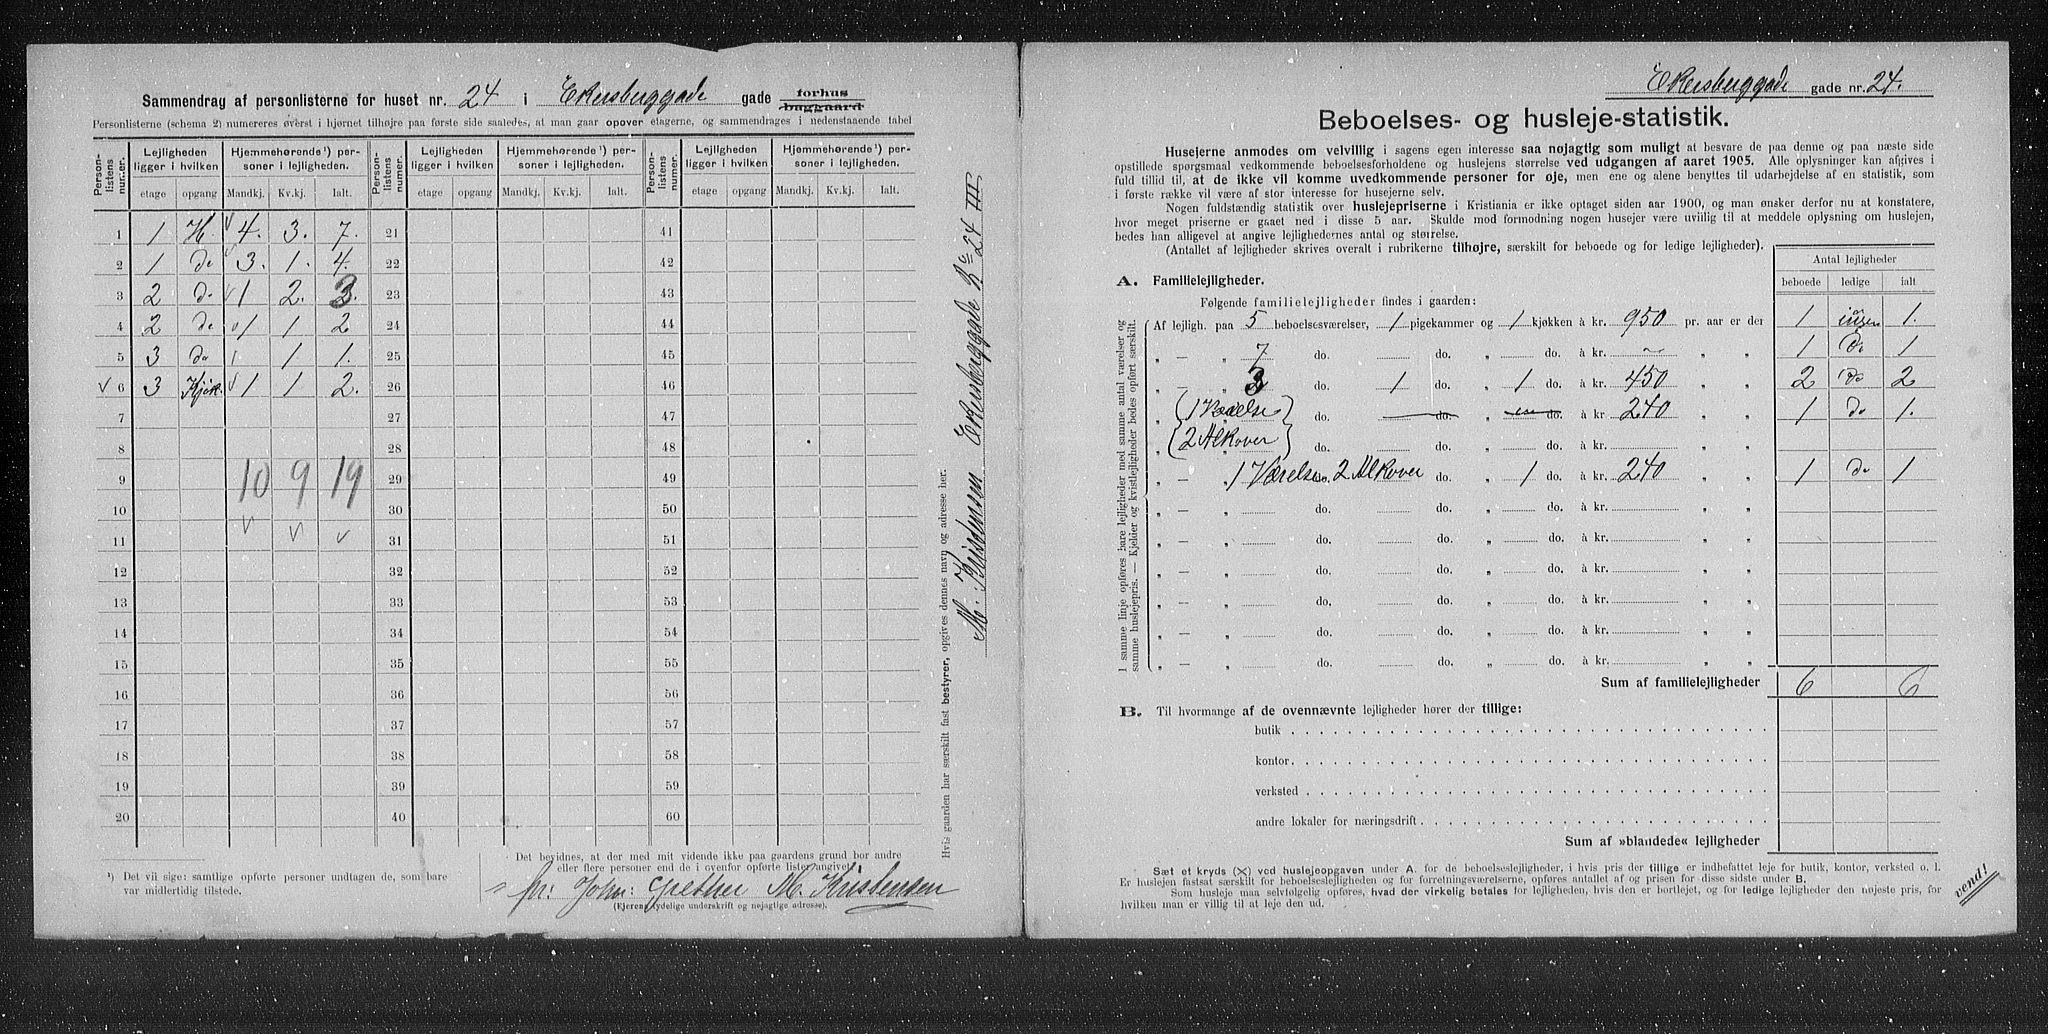 Sammendrag af personlisterne for huset nr. 24 i Ekersberggade gade forhus
buggaard
Personlisterne (schema 2) numereres øverst i hjørnet tilhøjre paa første side saaledes, at man gaar opover etagerne, og sammendrages i nedenstaaende tabel
Person-listens numer. Lejligheden ligger i hvilken Hjemmehørende ¹) personer i lejligheden. Person-listens numer. Lejligheden ligger i hvilken Hjemmehørende ¹) personer i lejligheden. Person-listens numer. Lejligheden ligger i hvilken Hjemmehørende ¹) personer i lejligheden.
etage opgang Mandkj. Kv.kj. Ialt. etage opgang Mandkj. Kv.kj. Ialt. etage opgang Mandkj. Kv.kj. Ialt.
1 1 H. √ 4. 3. 7. 21 41
2 1 do √ 3. 1. 4. 22 42
3 2 do √ 1 2. 3. 23 43
4 2 do √ 1 1 2. 24 44
5 3 do 1 1. 25 45
√ 6 3 Kjøk. √ 1 1 2. 26 46
7 27 47
8 28 48
9 10 9 19 29 49
10 √ √ √ 30 50
11 31 51
12 32 52
13 33 53
14 34 54
15 35 55
16 36 56
17 37 57
18 38 58
19 39 59
20 40 60
¹) Det vil sige: samtlige opførte personer undtagen de, som bare
var midlertidig tilstede.
Det bevidnes, at der med mit vidende ikke paa gaardens grund bor andre
eller flere personer end de i ovenfor opførte lister angivet.
pr: John: Grether M. Kristensen
(Ejerens tydelige underskrift og nøjagtige adresse).
Hvis gaarden har særskilt fast bestyrer, opgives dennes navn og adresse her.
M. Kristensen Ekersberggade No 24 III
Ekersberggade gade nr. 24.
Beboelses- og husleje-statistik.
Husejerne anmodes om velvillig i sagens egen interesse saa nøjagtig som muligt at besvare de paa denne og paa næste side
opstillede spørgsmaal vedkommende beboelsesforholdene og huslejens størrelse ved udgangen af aaret 1905. Alle oplysninger kan afgives i
fuld tillid til, at de ikke vil komme uvedkommende personer for øje, men ene og alene benyttes til udarbejdelse af en statistik, som
i første række vil være af stor interesse for husejerne selv.
Nogen fuldstændig statistik over huslejepriserne i Kristiania er ikke optaget siden aar 1900, og man ønsker derfor nu at konstatere,
hvor meget priserne er gaaet ned i disse 5 aar. Skulde mod formodning nogen husejer være uvillig til at meddele oplysning om huslejen,
bedes han alligevel at angive lejlighedernes antal og størrelse.
(Antallet af lejligheder skrives overalt i rubrikerne tilhøjre, særskilt for beboede og for ledige lejligheder).
Antal lejligheder
beboede ledige ialt
A. Familielejligheder.
Følgende familielejligheder findes i gaarden:
I samme linje opføres bare lejligheder med samme antal værelser og
samme huslejepris. — Kjelder og kvistlejligheder bedes opført særskilt.
Af lejligh. paa 5 beboelsesværelser, 1 pigekammer og 1 kjøkken à kr. 950 pr. aar er der 1 ingen 1.
„ — „ 7 do. do. „ do. à kr. „ „ 1 do 1
„ — „ 3 do. 1 do. „ 1 do. à kr. 450 „ „ 2 do 2
„ 1 Værelse do. do. „ do. à kr. 240 „ „ 1 do 1.
„ 2 Alkover do. do. „ do. à kr. „ „
„ — „ 1 Værelse do. 2 Alkover do. „ 1 do. à kr. 240 „ „ 1 do 1
„ — „ do. do. „ do. à kr. „ „
„ — „ do. do. „ do. à kr. „ „
„ — „ do. do. „ do. à kr. „ „
„ — „ do. do. „ do. à kr. „ „
„ — „ do. do. „ do. à kr. „ „
„ — „ do. do. „ do. à kr. „ „
Sum af familielejligheder 6 6
B. Til hvormange af de ovennævnte lejligheder hører der tillige:
butik
kontor
verksted
andre lokaler for næringsdrift
Sum af »blandede« lejligheder
Sæt et kryds (×) ved huslejeopgaven under A. for de beboelseslejligheder, i hvis pris der tillige er indbefattet leje for butik, kontor, verksted o. l.
Er huslejen fastsat særskilt for beboelseslejligheden og for forretningsværelserne, opføres antallet af og prisen for disse sidste under B.
Som husleje maa selvfølgelig opføres, hvad der virkelig betales for lejligheden, hvis den er bortlejet, og for ledige lejligheder den nøjeste pris, for
hvilken man er villig til at leje den ud.
vend!